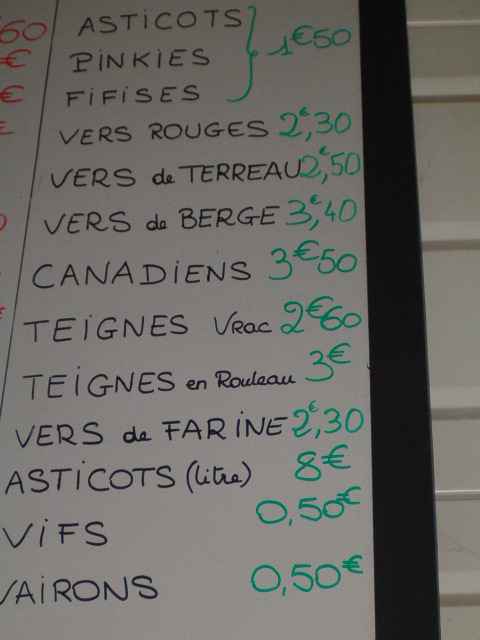 60 ASTICOTS
€ PINKIES 1€50
€ FIFISES
€ VERS ROUGES 2€,30
VERS de TERREAU 2€,50
VERS de BERGE 3€,40
CANADIENS 3€50
TEIGNES Vrac 2€60
TEIGNES en Rouleau 3€
VERS de FARINE 2€,30
ASTICOTS (litre) 8€
VIFS 0,50€
VAIRONS 0,50€